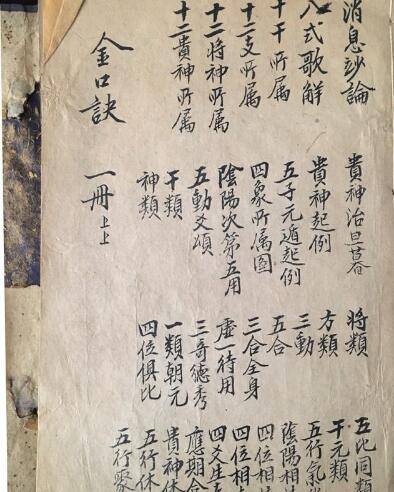 消息妙論
八式歌解
十干所属
十二支所属
十二将神所属
十二貴神所属
貴神治旦暮
貴神起例
五子元遁起例
四象所属图
陰陽次第五用
五動爻頌
干類
神類
将類
方類
三動
五合
三合全身
虚一待用
三哥德秀
一類朝元
四位俱比
五比同類
干元類
五行氣
陰陽相
四位相
四位相
四爻生
應期
貴神休
五行休
五行聚
金口訣 一冊 上上